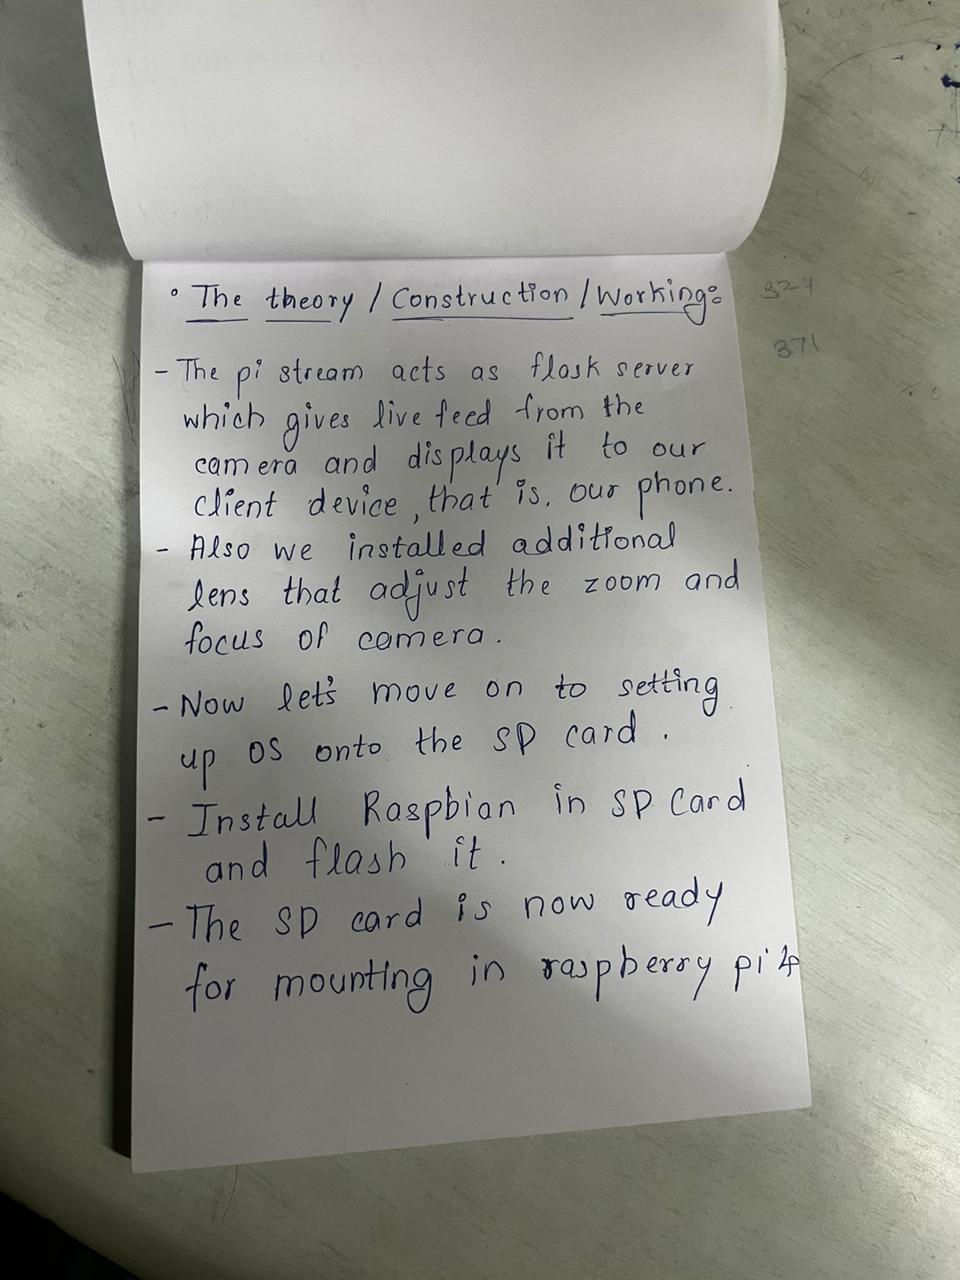 ° The theory / Construction / Working:
- The pi stream acts as flask server
which gives live feed from the
camera and displays it to our
client device, that is, our phone.
- Also we installed additional
lens that adjust the zoom and
focus of camera.
- Now let's move on to setting
up OS onto the SD card.
- Install Raspbian in SD Card
and flash it.
- The SD card is now ready
for mounting in raspberry pi 4
324
371